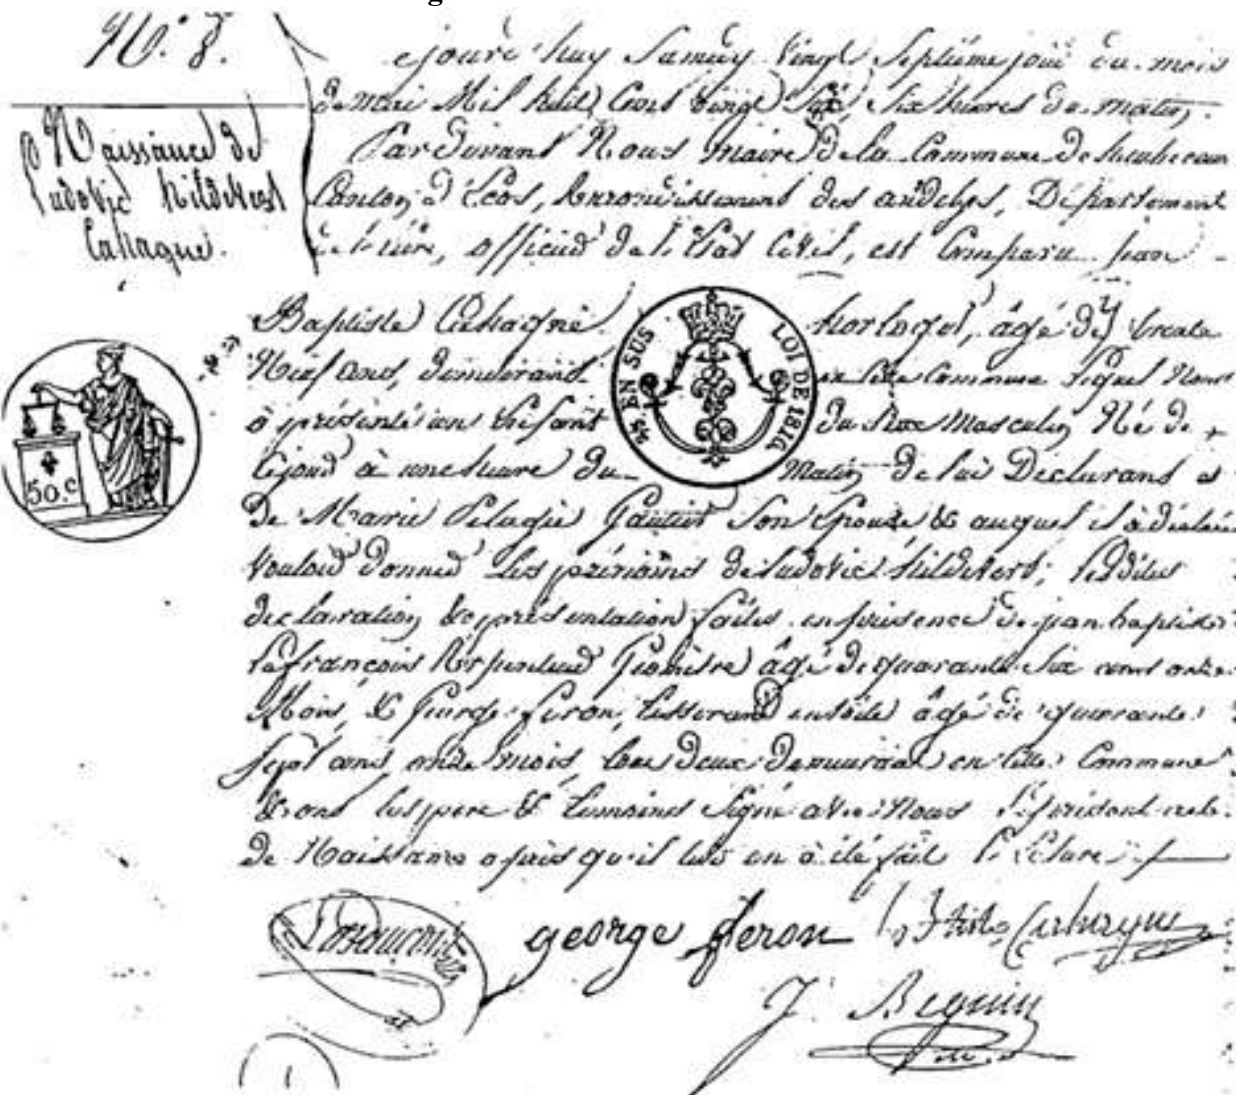 N.º 8.
Naissance de
Ludovic hildevert
Cahagne.
ejourd'huy Samedy Vingt Septième jour du mois
de mai Mil huit Cent Vingt Six, Six heures du matin,
Par Devant Nous Maire de la Commune de heubecourt
Canton d'Écos, Arrondissement des andelys, Département
de l'eure, officier de l'État Civil, est Comparu jean
Baptiste Cahagne horloger, âgé de trente
Neuf ans, demeurant en cette Commune lequel Nous
à présenté un Enfant du Sexe Masculin Né de
Cejour à une heure du Matin de lui Déclarant et
De Marie Pelagie Gautier Son Épouse, & auquel il à déclaré
Vouloir Donner les prénoms de Ludovic hildevert; lesdites
declaration & présentation faites en présence de jean baptiste
lefrançois Arpenteur Géomètre âgé de quarante Six ans onze
Mois, & George feron, tisserand en toile âgé de quarante
Sept ans onze mois, tous deux demeurant en cette Commune
& ont les père & temoins Signé avec Nous le présent acte
de Naissance après qu'il leur en à été fait lecture
george feron
J. Beguin
EN SUS
LOI DE 1816
50.c